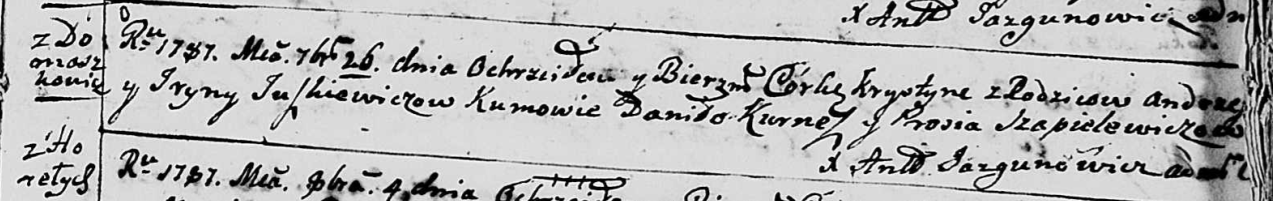 X Antd Jazgunowicz adm
z Do
masz
kowic
Ru 1787. Mca. 7bra 26. dnia Ochrzciłem y Bierzmd Córkę Krystynę z Rodzicow Andrzej
y Iryny Juszkiewiczow Kumowie Daniło Kurnesz y Prosia Szapielewiczow
X Antd Jazgunowicz adm
z Ho
retych
Ru 1787. Mca. 8bra. 4 dnia